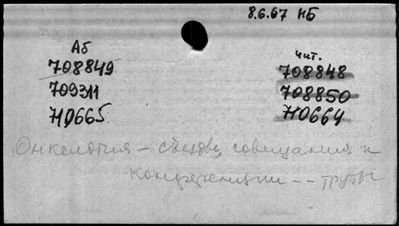 8.6.67 НБ
Аб
708849
709311
710665
чит.
708848
708850
710664
Онкология – съезды, совещания и
конференции -- труды